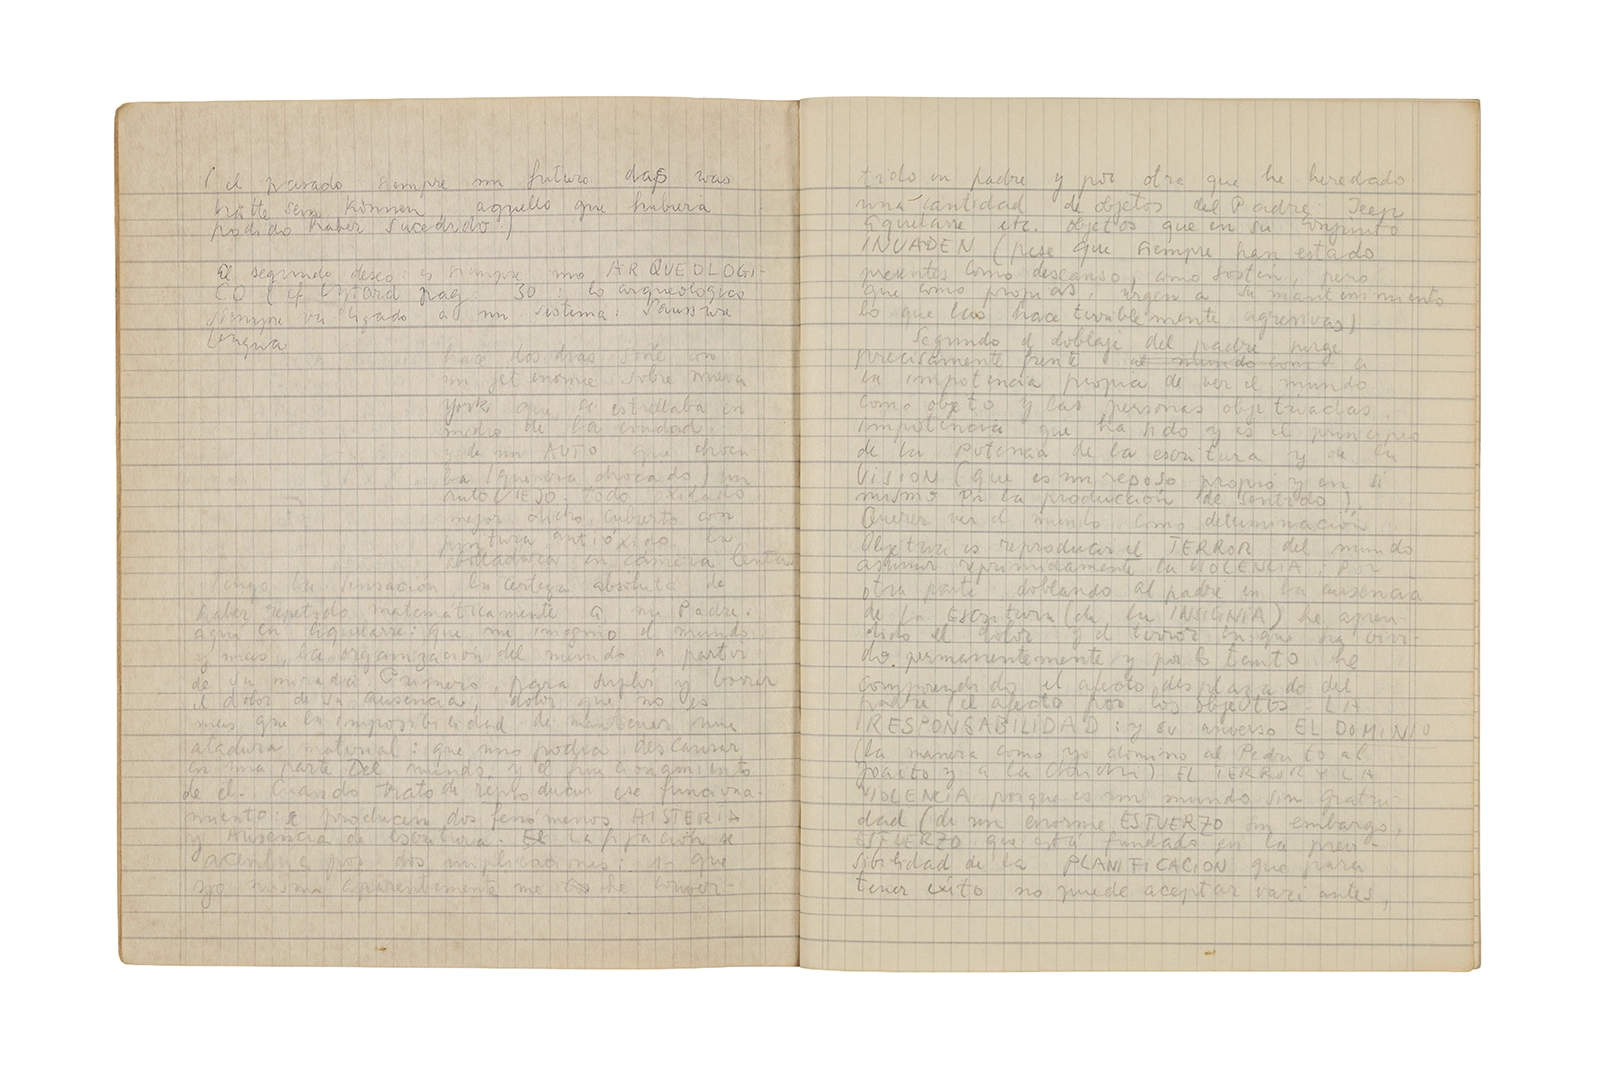 (el pasado siempre un futuro daß was
hätte sein können aquello que hubiera
podido haber sucedido.)
El segundo deseo: es siempre uno ARQUEOLOGI-
CO (cf Lyotard pag. 30: lo arqueológico
siempre va ligado a un sistema: Saussure
Lengua
hace dos días soñé con
un jet enorme sobre nueva
york que se estrellaba en
medio de la ciudad.
y de un AUTO que choca
ba (que era chocado) un
auto VIEJO. todo oxidado
mejor dicho cubierto con
pintura antióxido. la
en cámera lenta
Tengo la sensación la certeza absoluta de
haber repetido matemáticamente a mi Padre.
aquí en Eiguelarre: que me imagino el mundo
y mas, la organización del mundo a partir
de su mirada Primero, para suplir y borrar
el dolor de su ausencia, dolor que no es
mas que la imposibilidad de mantener una
atadura material: que uno podía descansar
en una parte Del mundo, y el funcionamiento
de el. Cuando trato de reproducir ese funciona-
miento: se producen dos fenómenos HISTERIA
y Ausencia de Escritura. la fijación se
acentúa por dos implicaciones: que
yo misma aparentemente me he conver-
tido en padre y por otra que he heredado
una cantidad de objetos del Padre: Jeep
Eiguelarre etc. objetos que en su conjunto
INVADEN (pese que siempre han estado
presentes como descanso, como sostén, pero
que como propios urgen a su mantenimiento
lo que los hace terriblemente agresivas)
Segundo el doblaje del padre surge
precisamente frente al mundo como a
la impotencia propia de ver el mundo
como objeto y las personas objetivadas.
Impotencia que ha sido y es el principio
de la Potencia de la escritura y de la
VISION (que es un reposo propio y en sí
mismo la producción de sentido).
Querer ver el mundo como determinación
Objetiva es reproducir el TERROR del mundo
asumir reprimidamente la VIOLENCIA: Por
otra parte doblando al padre en la ausencia
de la Escritura (de la INSIGNIA) he apren-
dido el dolor y el terror en que ha vivi-
do permanentemente y por lo tanto he
comprendido el afecto desplazado del
padre (el afecto por los objetos. LA
RESPONSABILIDAD: y su anverso EL DOMINIO
(la manera como yo domino al Pedrito al
y a la ) EL TERROR Y LA
VIOLENCIA porque es un mundo sin gratui-
dad (de un enorme ESFUERZO sin embargo,
ESFUERZO que está fundado en la previ-
sibilidad de la PLANIFICACION que para
tener éxito no puede aceptar variantes,